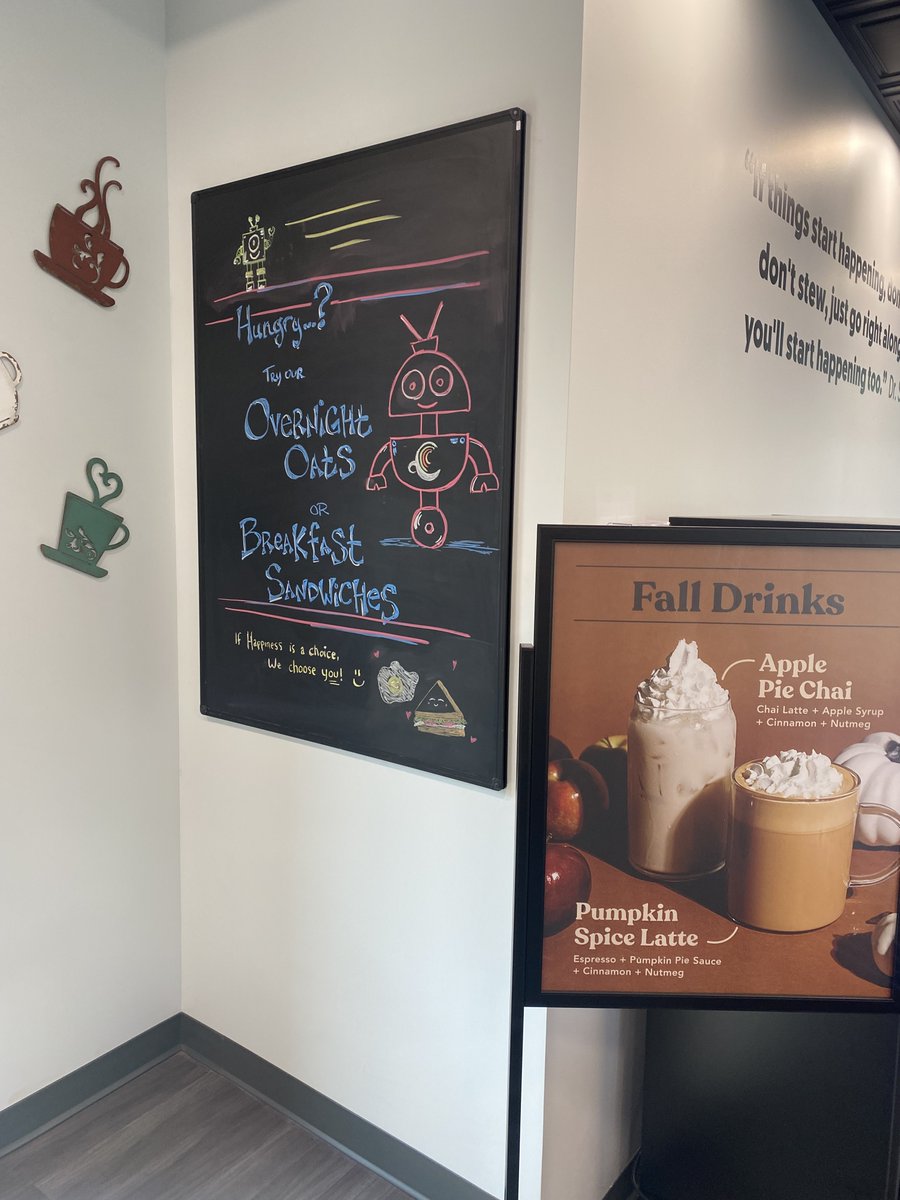 Hungry...?
Try our
Overnight
Oats
or
Breakfast
Sandwiches
If Happiness is a choice,
We choose you!
"If things start happening, don
don't stew, just go right along
you'll start happening too." Dr. S
Fall Drinks
Apple
Pie Chai
Chai Latte + Apple Syrup
+ Cinnamon + Nutmeg
Pumpkin
Spice Latte
Espresso + Pumpkin Pie Sauce
+ Cinnamon + Nutmeg